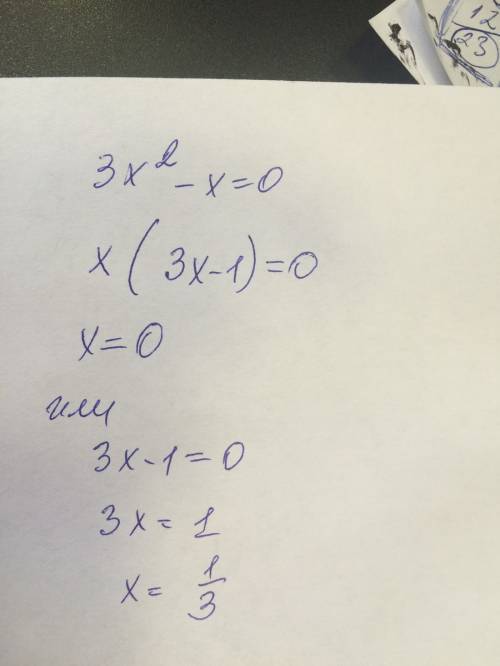 12
23
3x² - x = 0
x(3x-1) = 0
x = 0
или
3x-1 = 0
3x = 1
x = 1/3